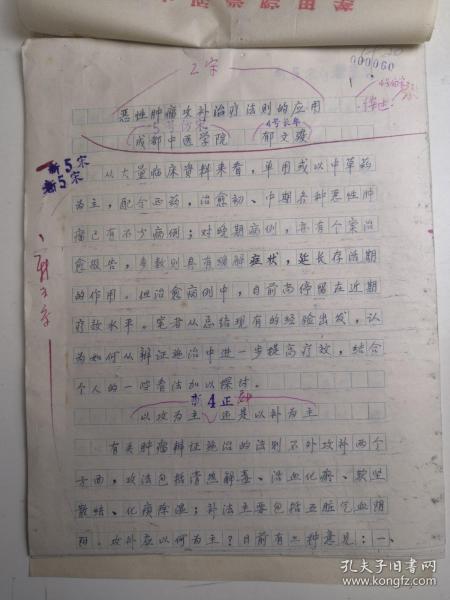 000060
2宋
恶性肿瘤攻补治疗法则的应用
5号仿宋
4号长牟
成都中医学院 郁文骏
新5宋
新5宋
从大量临床资料来看，单用或以中草药
为主，配合西药，治愈初、中期各种恶性肿
瘤已有不少病例；对晚期病例，亦有个案治
愈报告，多数则具有缓解症状，延长存活期
的作用。但治愈病例中，目前尚停留在近期
疗效水平。笔者从总结现有的经验出发，认
为如何从辨证施治中进一步提高疗效，结合
个人的一些看法加以探讨。
新4正
以攻为主 还是以补为主
有关肿瘤辩证施治的法则不外攻补两个
方面，攻法包括清热解毒、活血化瘀、软坚
散结、化痰除湿；补法主要包括五脏气血阴
阳。攻补应以何为主？目前有三种意见：一、
孔夫子旧书网
book.kongfz.com